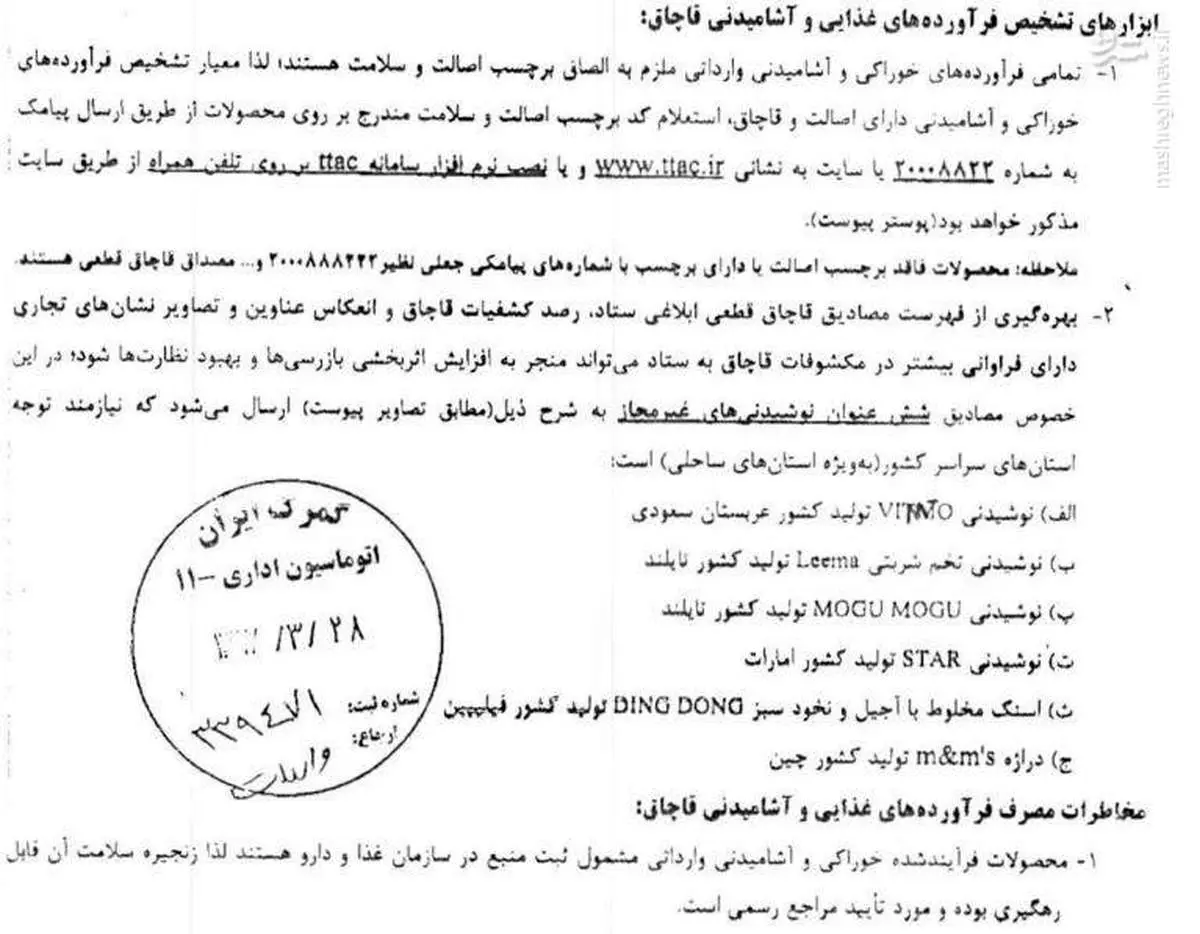 ابزارهای تشخیص فرآورده‌های غذایی و آشامیدنی قاچاق:
۱- تمامی فرآورده‌های خوراکی و آشامیدنی وارداتی ملزم به الصاق برچسب اصالت و سلامت هستند؛ لذا معیار تشخیص فرآورده‌های
خوراکی و آشامیدنی دارای اصالت و قاچاق، استعلام کد برچسب اصالت و سلامت مندرج بر روی محصولات از طریق ارسال پیامک
به شماره ۲۰۰۰۸۸۲۲ یا سایت به نشانی www.ttac.ir و یا نصب نرم افزار سامانه ttac بر روی تلفن همراه از طریق سایت
مذکور خواهد بود(پوستر پیوست).
ملاحظه: محصولات فاقد برچسب اصالت یا دارای برچسب با شماره‌های پیامکی جعلی نظیر ۲۰۰۰۸۸۸۲۲۲ و... مصداق قاچاق قطعی هستند.
۲- بهره‌گیری از فهرست مصادیق قاچاق قطعی ابلاغی ستاد، رصد کشفیات قاچاق و انعکاس عناوین و تصاویر نشان‌های تجاری
دارای فراوانی بیشتر در مکشوفات قاچاق به ستاد می‌تواند منجر به افزایش اثربخشی بازرسی‌ها و بهبود نظارت‌ها شود؛ در این
خصوص مصادیق شش عنوان نوشیدنی‌های غیرمجاز به شرح ذیل(مطابق تصاویر پیوست) ارسال می‌شود که نیازمند توجه
استان‌های سراسر کشور(به‌ویژه استان‌های ساحلی) است:
الف) نوشیدنی تولید کشور عربستان سعودی
ب) نوشیدنی تخم شربتی Leema تولید کشور تایلند
پ) نوشیدنی MOGU MOGU تولید کشور تایلند
ت) نوشیدنی STAR تولید کشور امارات
ث) اسنک مخلوط با آجیل و نخود سبز DING DONG تولید کشور فیلیپین
ج) دراژه m&m's تولید کشور چین
گمرک ایران
اتوماسیون اداری -۱۱
/۳/۲۸
شماره ثبت: ۳۳۹۴۷۱
ارجاع: واردات
مخاطرات مصرف فرآورده‌های غذایی و آشامیدنی قاچاق:
۱- محصولات فرآیندشده خوراکی و آشامیدنی وارداتی مشمول ثبت منبع در سازمان غذا و دارو هستند لذا زنجیره سلامت آن قابل
رهگیری بوده و مورد تأیید مراجع رسمی است.
mashreghnews.ir